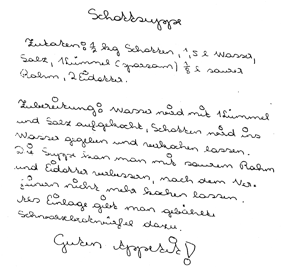 Schottsuppe
Zutaten: ¼ kg Schotten, 1,5 l Wasser,
Salz, Kümmel (sparsam) ⅛ l saurer
Rahm, 2 Eidotter.
Zubereitung: Wasser wird mit Kümmel
und Salz aufgekocht, Schotten wird ins
Wasser gegeben und verkochen lassen.
Die Suppe kann man mit saurem Rahm
und Eidotter verbessern, nach dem Ver-
feinern nicht mehr kochen lassen.
Als Einlage gibt man gebähte
Schwarzbrotwürfel dazu.
Guten Appetit!